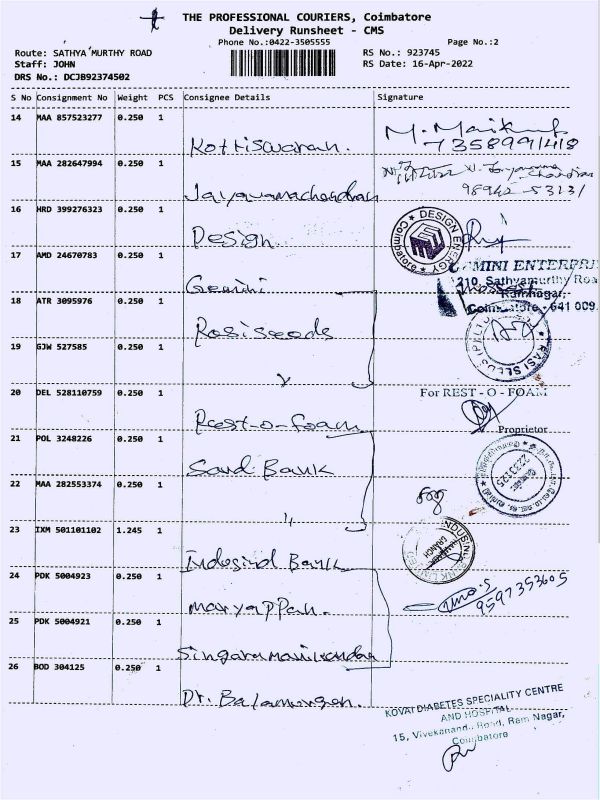 THE PROFESSIONAL COURIERS, Coimbatore
Delivery Runsheet - CMS
Phone No.:0422-3505555
Page No.:2
Route: SATHYA MURTHY ROAD
RS No.: 923745
Staff: JOHN
RS Date: 16-Apr-2022
DRS No.: DCJB92374502
S No Consignment No Weight PCS Consignee Details Signature
14 MAA 857523277 0.250 1
Kottiswaran.
7358991418
15 MAA 282647994 0.250 1
Jayaramachandran
98942-53231
16 HRD 399276323 0.250 1
Design
DESIGN ENERGY
Coimbatore
17 AMD 24670783 0.250 1
Gemini
MINI ENTERPRI
210, Sathyamurthy Roa
Ramnagar,
Coimbatore - 641 009.
18 ATR 3095976 0.250 1
Rasiseeds
RASI SEEDS (P) LTD
19 GJW 527585 0.250 1
20 DEL 528110759 0.250 1
Rest-o-foam
For REST - O - FOAM
Proprietor
21 POL 3248226 0.250 1
Saud Bank
22 MAA 282553374 0.250 1
"
23 IXM 501101102 1.245 1
Indusind Bank
INDUSIND BANK LIMITED
BRANCH
24 PDK 5004923 0.250 1
Maryappan.
9597353605
25 PDK 5004921 0.250 1
Singaramanikandan
26 BOD 304125 0.250 1
Dr. Balamurgan.
KOVAI DIABETES SPECIALITY CENTRE
AND HOSPITAL
15, Vivekanand Road, Ram Nagar,
Coimbatore